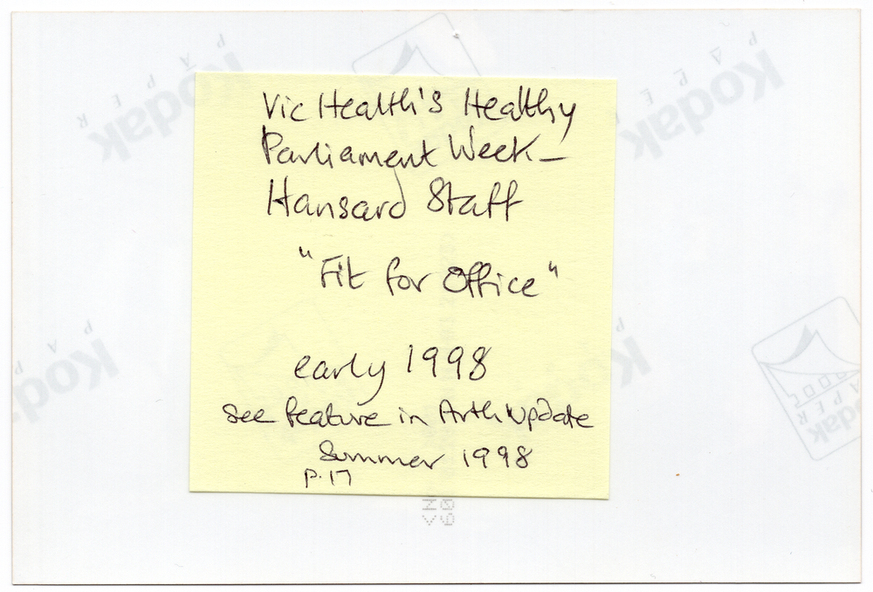 Vic Health's Healthy
Parliament Week –
Hansard Staff
"Fit for Office"
early 1998
see feature in Arth Update
Summer 1998
p.17
Kodak
PAPER
Kodak
PAPER
Kodak
PAPER
Kodak
PAPER